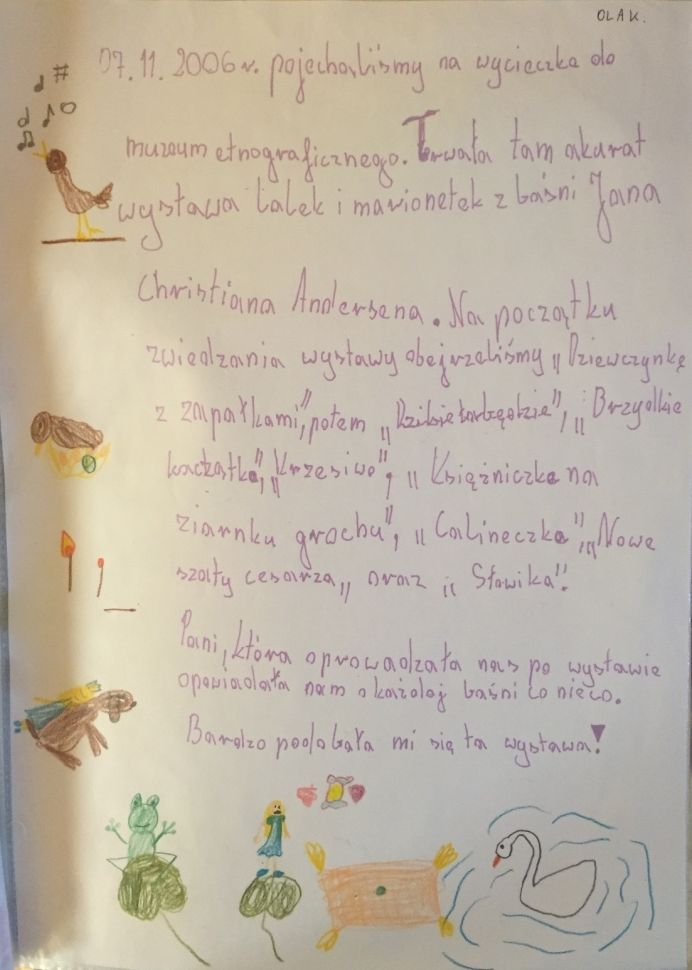 OLA K.
07.11.2006 r. pojechaliśmy na wycieczkę do
muzeum etnograficznego. Trwała tam akurat
wystawa lalek i marionetek z baśni Jana
Christiana Andersena. Na początku
zwiedzania wystawy obejrzeliśmy „Dziewczynkę
z zapałkami”, potem „Dzikie łabędzie”, „Brzydkie
kaczątko”, „Krzesiwo”, „Księżniczkę na
ziarnku grochu”, „Calineczkę”, „Nowe
szaty cesarza„ oraz „Słowika”.
Pani, która oprowadzała nas po wystawie
opowiadała nam o każdej baśni co nieco.
Bardzo podobała mi się ta wystawa!